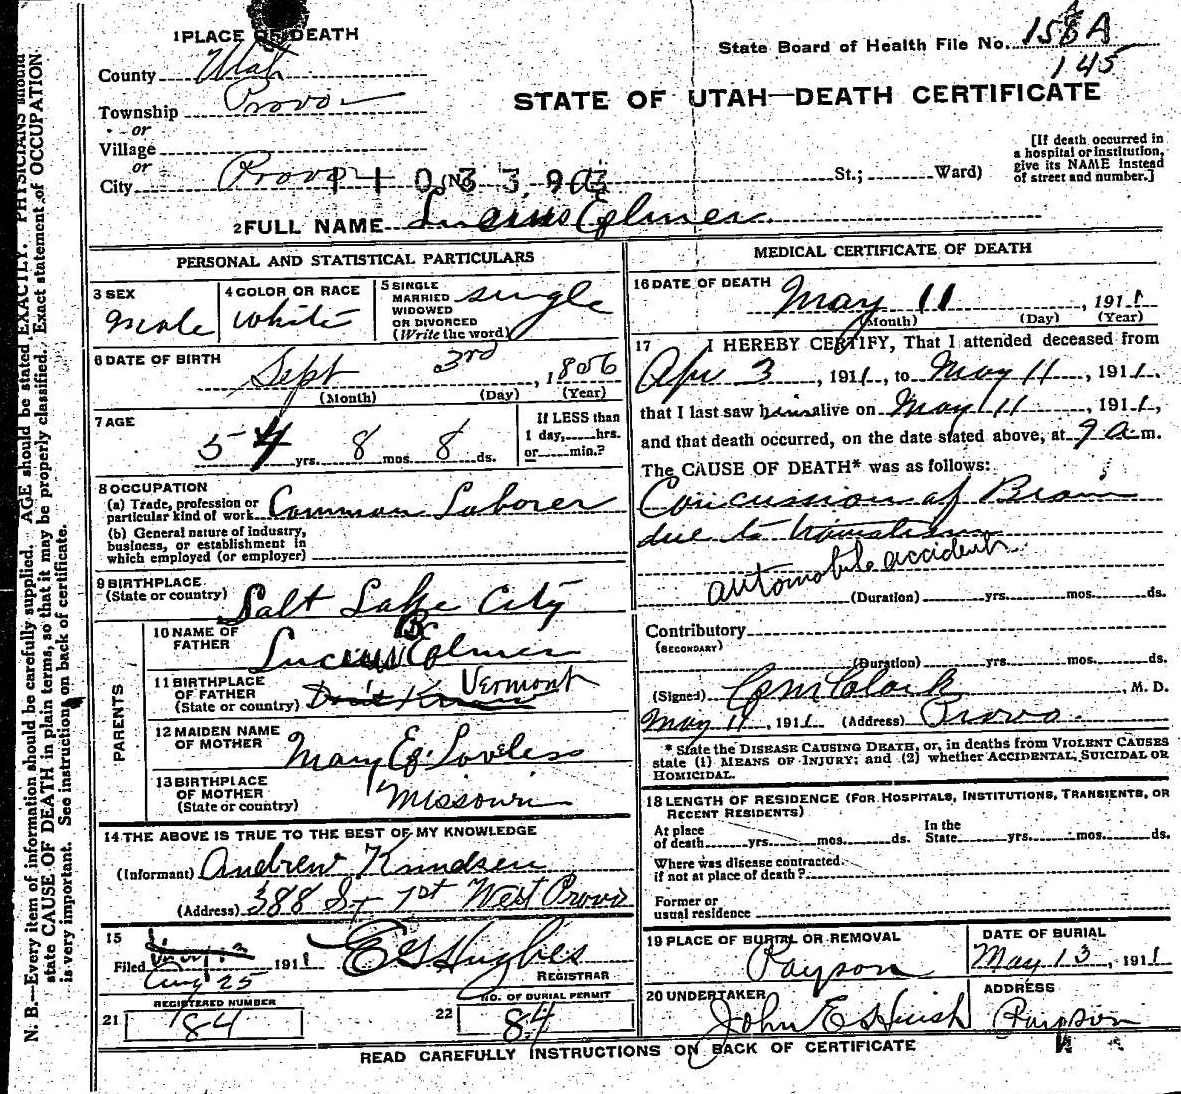 1 PLACE OF DEATH
State Board of Health File No. 158 A
145
County Utah
Township Provo
STATE OF UTAH—DEATH CERTIFICATE
or
Village
or
City Provo
St.; Ward)
[If death occurred in
a hospital or institution,
give its NAME instead
of street and number.]
2 FULL NAME Lucius Elmer
PERSONAL AND STATISTICAL PARTICULARS
3 SEX
male
4 COLOR OR RACE
white
5 SINGLE
MARRIED
WIDOWED
OR DIVORCED
(Write the word)
single
6 DATE OF BIRTH
Sept 3rd, 1856
(Month) (Day) (Year)
7 AGE
54 yrs. 8 mos. 8 ds.
If LESS than
1 day, hrs.
or min.?
8 OCCUPATION
(a) Trade, profession or
particular kind of work Common Laborer
(b) General nature of industry,
business, or establishment in
which employed (or employer)
9 BIRTHPLACE
(State or country) Salt Lake City
PARENTS
10 NAME OF
FATHER
Lucius B Elmer
11 BIRTHPLACE
OF FATHER
(State or country) Don't Know Vermont
12 MAIDEN NAME
OF MOTHER Mary E. Loveless
13 BIRTHPLACE
OF MOTHER
(State or country) Missouri
14 THE ABOVE IS TRUE TO THE BEST OF MY KNOWLEDGE
(Informant) Andrew Knudsen
(Address) 388 S. 1st West Provo
15
Filed Aug 25 1911 E G Hughes
REGISTRAR
REGISTERED NUMBER
21 84
NO. OF BURIAL PERMIT
22 84
MEDICAL CERTIFICATE OF DEATH
16 DATE OF DEATH
May 11, 1911
(Month) (Day) (Year)
17 I HEREBY CERTIFY, That I attended deceased from
Apr 3, 1911, to May 11, 1911.
that I last saw him alive on May 11, 1911,
and that death occurred, on the date stated above, at 9 a m.
The CAUSE OF DEATH* was as follows:
Concussion of Brain
due to
automobile accident
(Duration) yrs. mos. ds.
Contributory
(SECONDARY)
(Duration) yrs. mos. ds.
(Signed) Clark, M. D.
May 11, 1911 (Address) Provo.
* State the DISEASE CAUSING DEATH, or, in deaths from VIOLENT CAUSES
state (1) MEANS OF INJURY; and (2) whether ACCIDENTAL, SUICIDAL OR
HOMICIDAL.
18 LENGTH OF RESIDENCE (FOR HOSPITALS, INSTITUTIONS, TRANSIENTS, OR
RECENT RESIDENTS)
At place
of death yrs. mos. ds.
In the
State yrs. mos. ds.
Where was disease contracted,
if not at place of death?
Former or
usual residence
19 PLACE OF BURIAL OR REMOVAL
Payson
DATE OF BURIAL
May 13, 1911
20 UNDERTAKER
John E Huish
ADDRESS
Payson
READ CAREFULLY INSTRUCTIONS ON BACK OF CERTIFICATE
N. B.—Every item of information should be carefully supplied. AGE should be stated EXACTLY. PHYSICIANS should
state CAUSE OF DEATH in plain terms, so that it may be properly classified. Exact statement of OCCUPATION
is very important. See instructions on back of certificate.